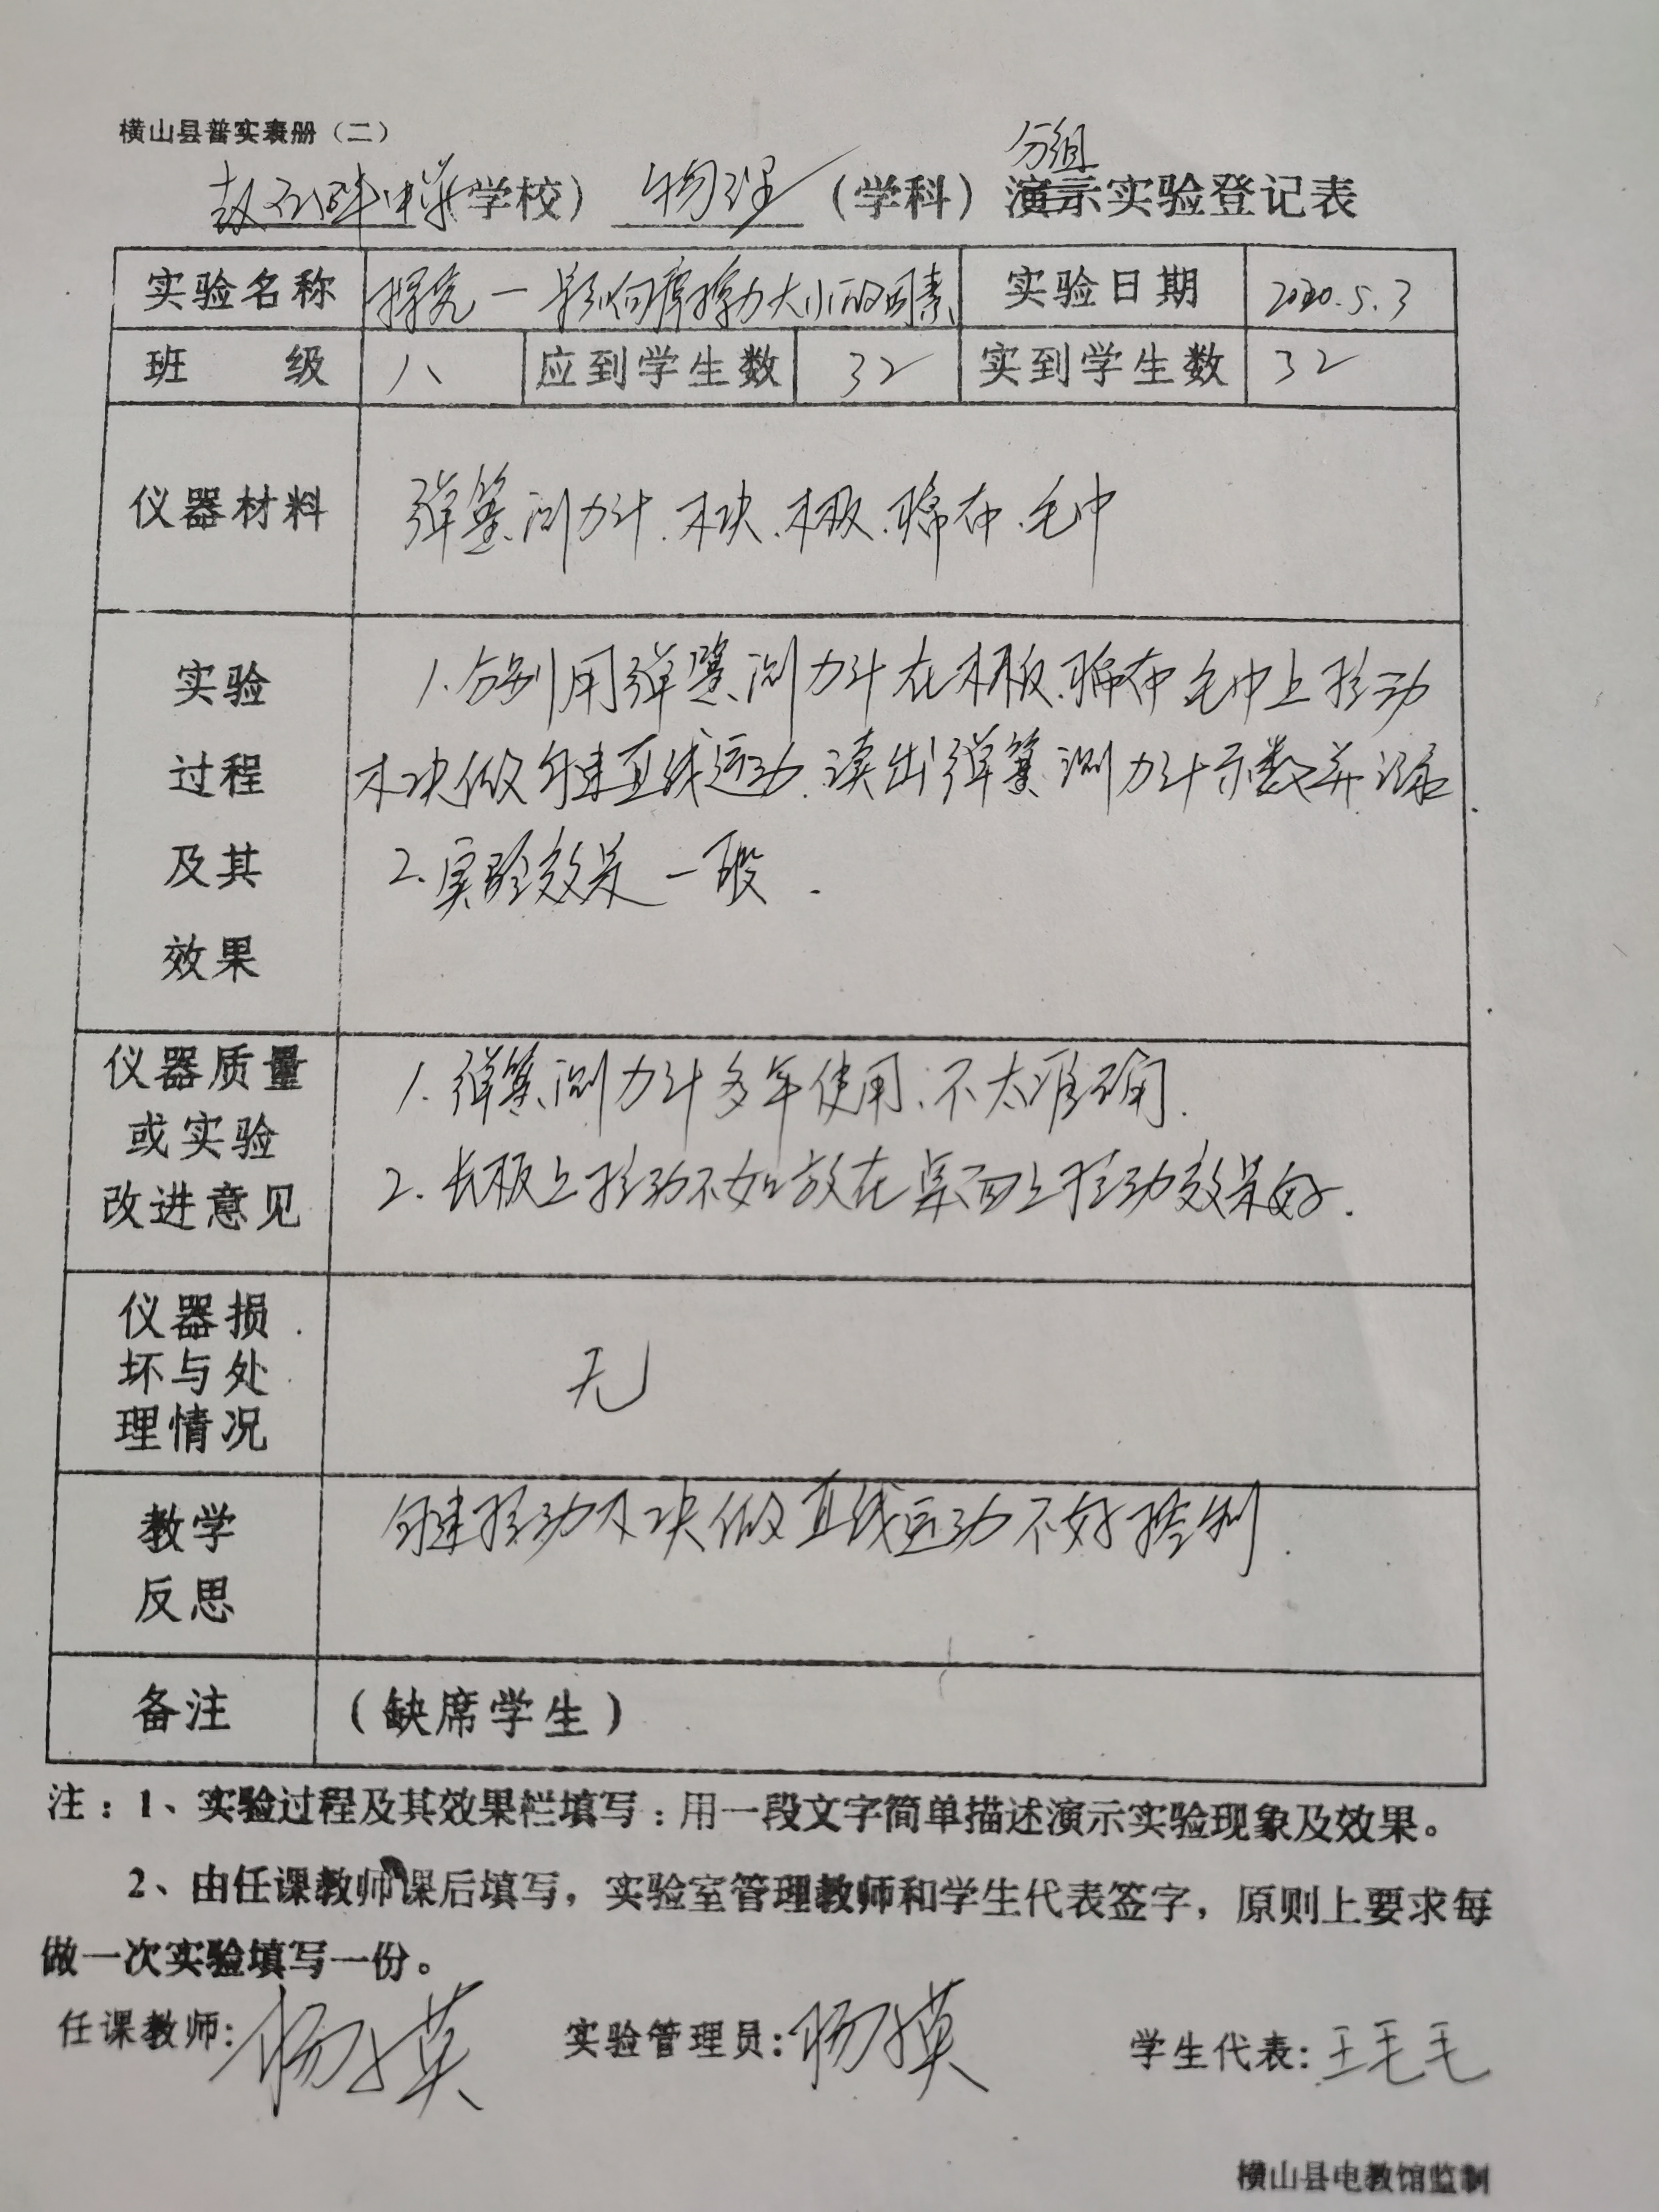 横山县普实表册（二）
分组
中学学校） 物理 （学科）演示实验登记表
实验名称 探究一影响摩擦力大小的因素 实验日期 2020.5.3
班 级 八 应到学生数 32 实到学生数 32
仪器材料 弹簧测力计.木块.木板.棉布.毛巾
实验
过程
及其
效果
1.分别用弹簧测力计在木板.棉布毛巾上拉动
木块做匀速直线运动.读出弹簧测力计示数并记录.
2.实验效果一般.
仪器质量
或实验
改进意见
1.弹簧测力计多年使用.不太准确.
2.长板上拉动不如放在桌面上拉动效果好.
仪器损
坏与处
理情况
无
教学
反思
匀速拉动木块做直线运动不好控制.
备注 （缺席学生）
注：1、实验过程及其效果栏填写：用一段文字简单描述演示实验现象及效果。
2、由任课教师课后填写，实验室管理教师和学生代表签字，原则上要求每
做一次实验填写一份。
任课教师: 杨英 实验管理员: 杨英 学生代表: 王毛毛
横山县电教馆监制